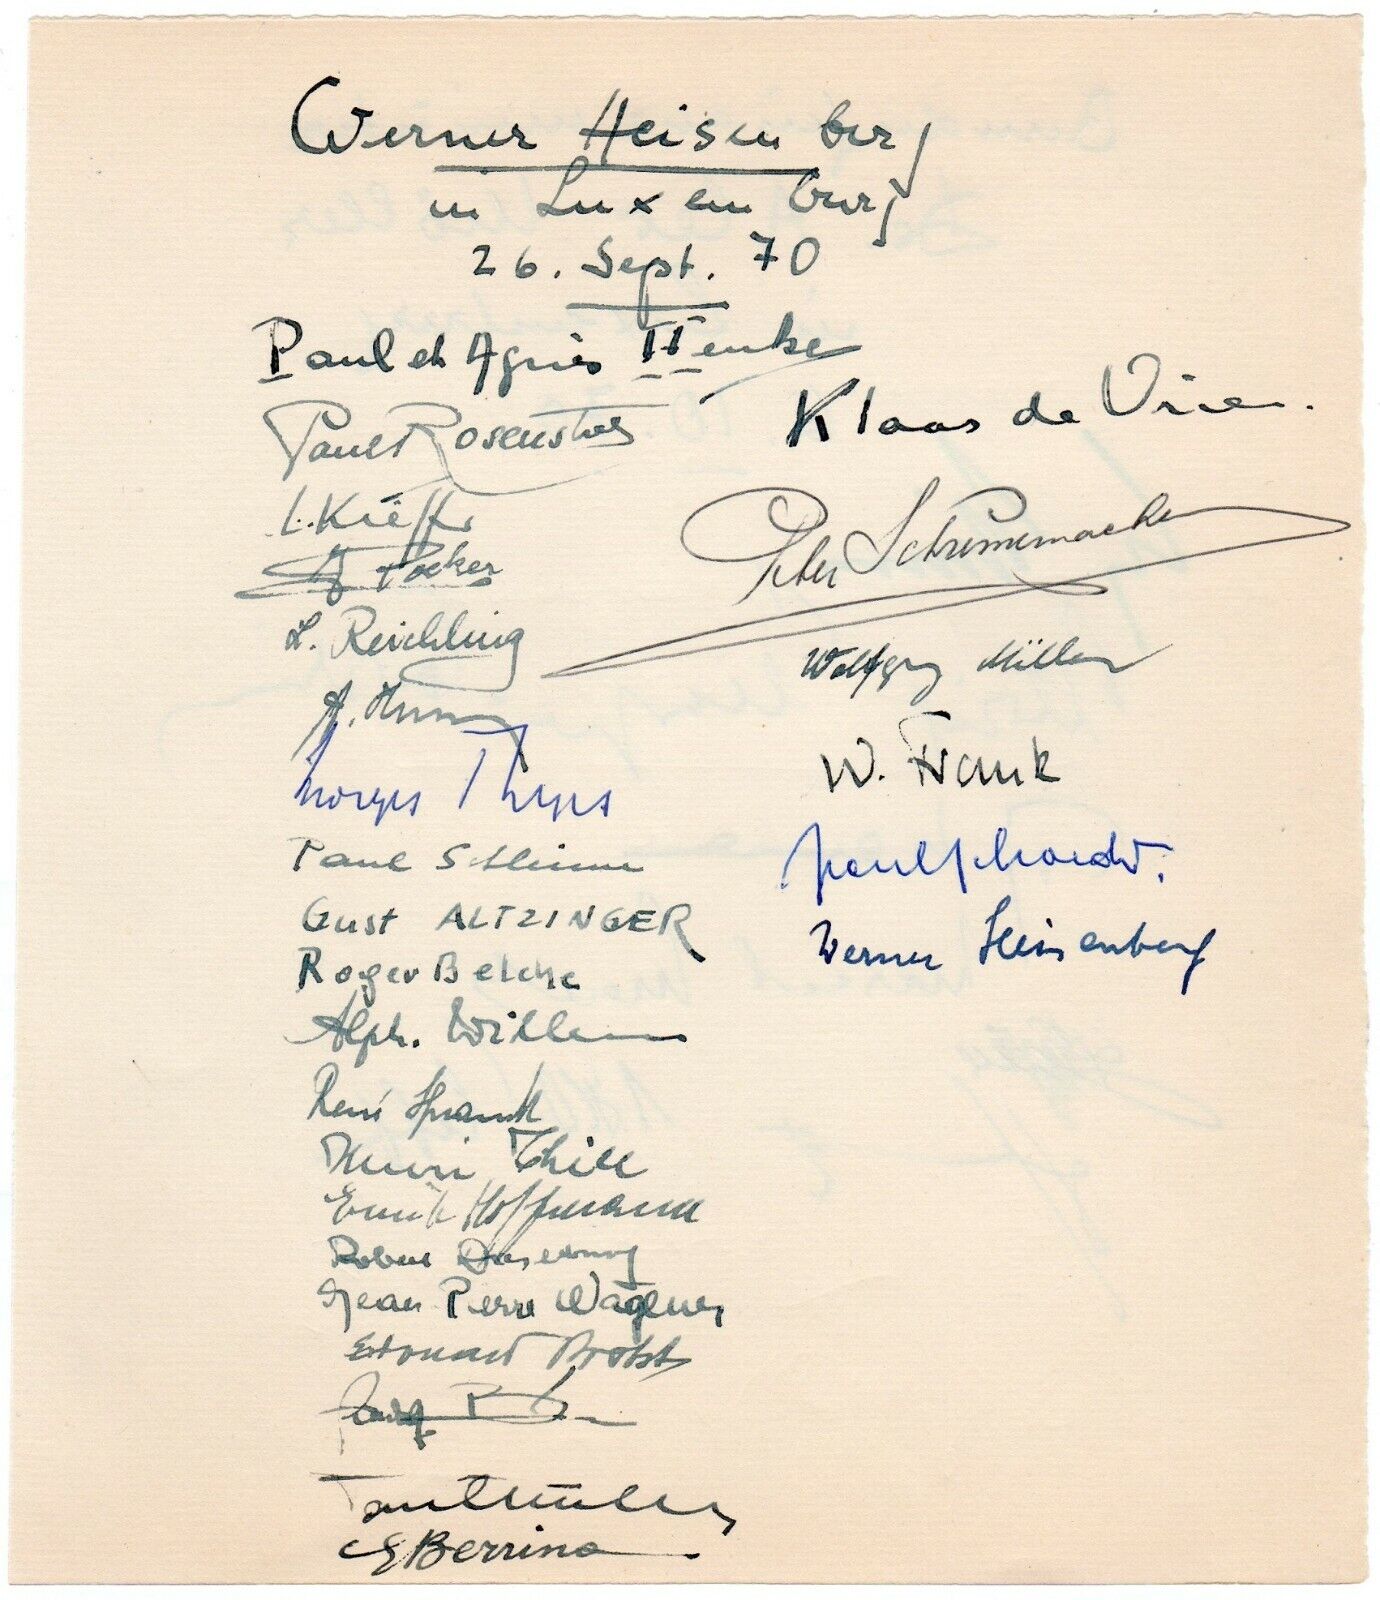 Werner Heisenberg
in Luxemburg
26. Sept. 70
Paul et Agnès Henke
Paul Rosenstiel
Klaas de Vries.
L. Kieffer
Peter Schrimmacher
L. Reichling
Wolfgang Müller
A.
Georges Thyes
W. Frank
Paul Schleimer
Gust ALTZINGER
Werner Heisenberg
Roger Belche
Alph. Willems
René
Henri Thill
Emile Hoffmann
Robert
Jean Pierre Wagner
Edouard Probst
Paul Müller
Berrino